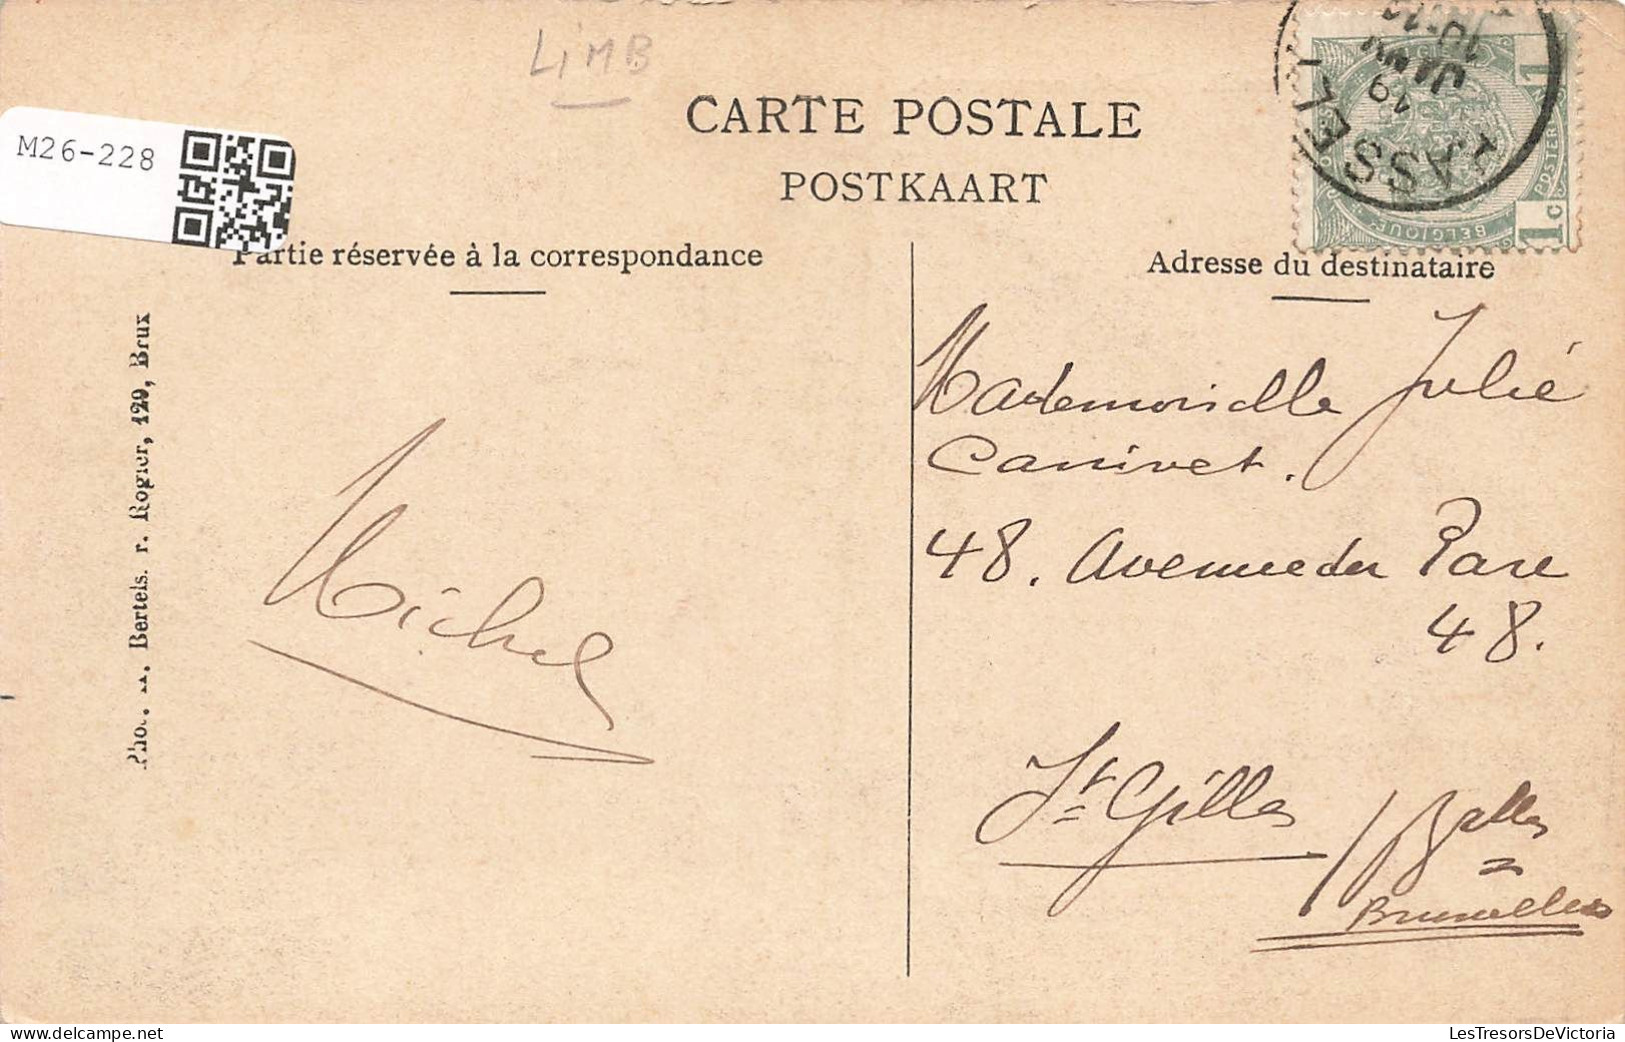 LIMB
M26-228
CARTE POSTALE
POSTKAART
Partie réservée à la correspondance
Adresse du destinataire
Phot. H. Bertels. r. Rogier, 129, Brux
Michel
Mademoiselle Julie
Canivet.
48. Avenue du Parc
48.
St Gilles
Bruxelles
BELGIQUE
1c
1
19
JAN
10-1
HASSELT
LesTresorsDeVictoria.com